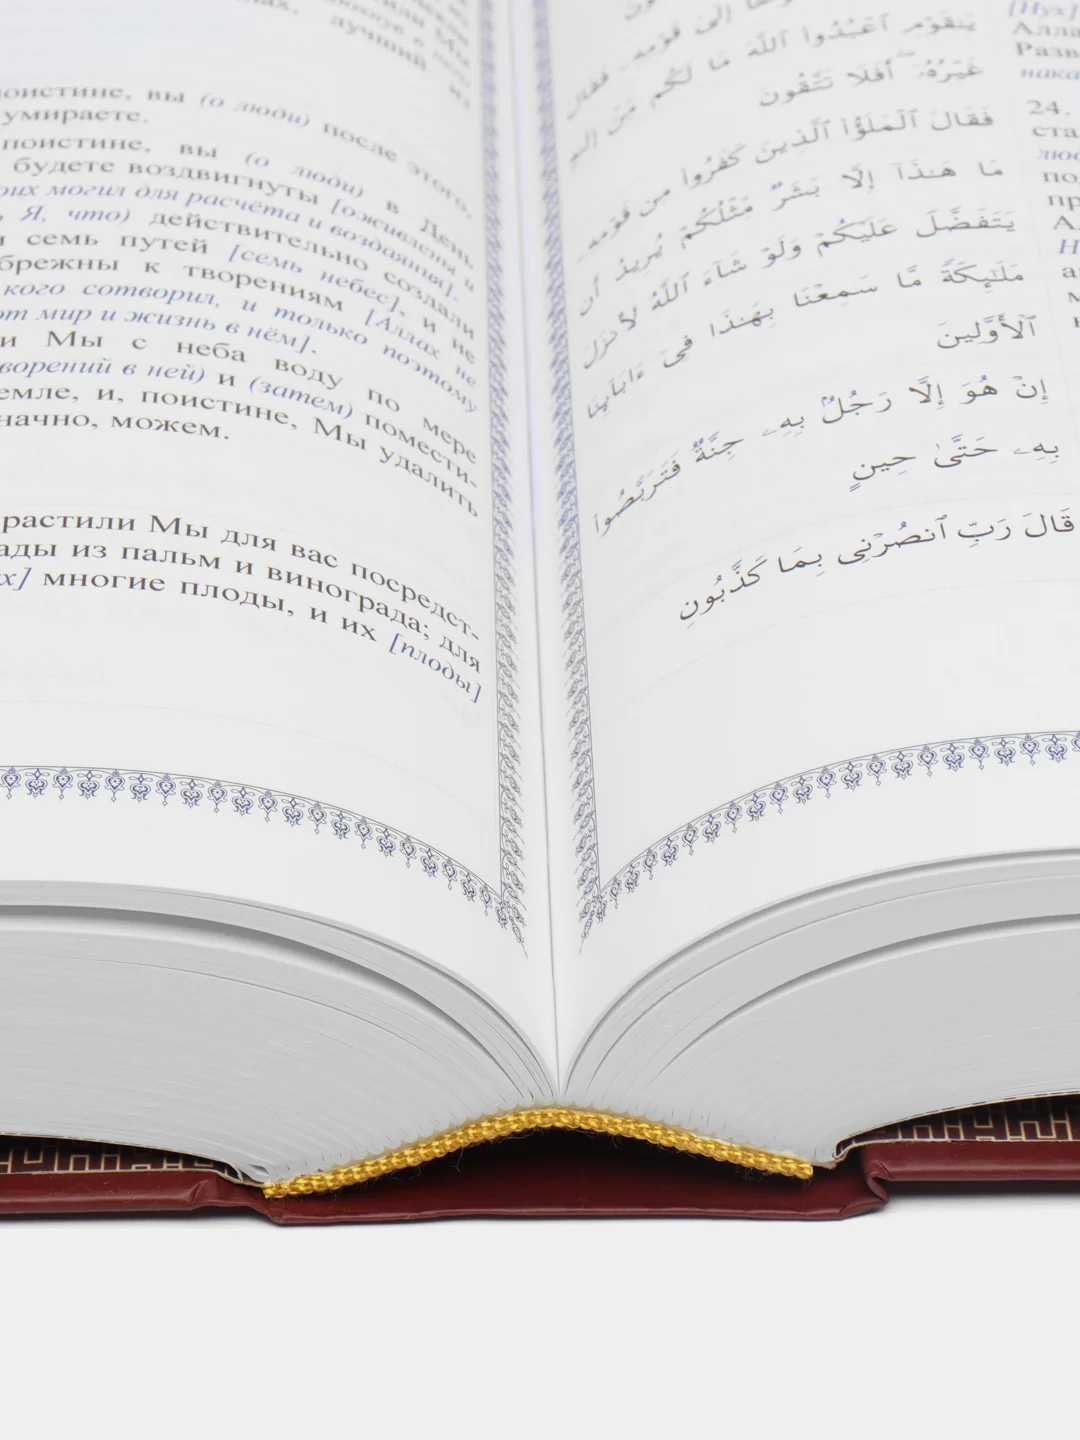 лучший
поистине, вы (о люди) после этого,
умираете.
поистине, вы (о люди) в День
будете воздвигнуты [оживлены и
могил для расчёта и воздаяния].
Я, что) действительно создали
семь путей [семь небес], и не
брежны к творениям [Аллах не
кого сотворил, и только поэтому
мир и жизнь в нём].
и Мы с неба воду по мере
ворений в ней) и (затем) помести-
емле, и, поистине, Мы удалить
начно, можем.
растили Мы для вас посредст-
ады из пальм и винограда; для
х] многие плоды, и их [плоды]
إِلَىٰ قَوْمِهِۦ فَقَالَ
يَٰقَوْمِ ٱعْبُدُوا۟ ٱللَّهَ مَا لَكُم مِّنْ إِلَٰهٍ
غَيْرُهُۥٓ أَفَلَا تَتَّقُونَ
فَقَالَ ٱلْمَلَؤُا۟ ٱلَّذِينَ كَفَرُوا۟ مِن قَوْمِهِۦ
مَا هَٰذَآ إِلَّا بَشَرٌ مِّثْلُكُمْ يُرِيدُ أَن
يَتَفَضَّلَ عَلَيْكُمْ وَلَوْ شَآءَ ٱللَّهُ لَأَنزَلَ
مَلَٰٓئِكَةً مَّا سَمِعْنَا بِهَٰذَا فِىٓ ءَابَآئِنَا
ٱلْأَوَّلِينَ
إِنْ هُوَ إِلَّا رَجُلٌۢ بِهِۦ جِنَّةٌ فَتَرَبَّصُوا۟
بِهِۦ حَتَّىٰ حِينٍ
قَالَ رَبِّ ٱنصُرْنِى بِمَا كَذَّبُونِ
[Нух]
Алла
Разв
нака
24.
ста
люс
по
пр